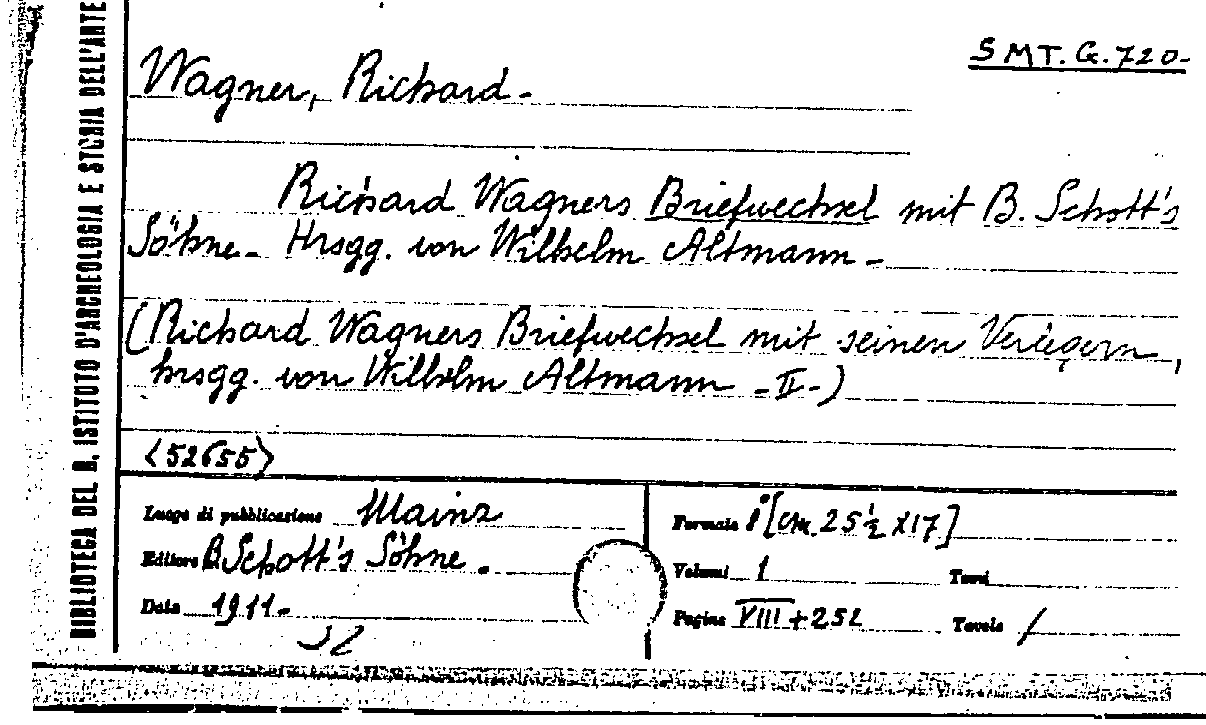 BIBLIOTECA DEL R. ISTITUTO D'ARCHEOLOGIA E STORIA DELL'ARTE
SMT. G. 720-
Wagner, Richard -
Richard Wagners Briefwechsel mit B. Schott's
Söhne - Hrsgg. von Wilhelm Altmann -
(Richard Wagners Briefwechsel mit seinen Verlegern,
hrsgg. von Wilhelm Altmann - II -)
<52655>
Luogo di pubblicazione Mainz
Editore B. Schott's Söhne.
Data 1911-
Formato 8° [cm. 25½ x 17]
Volumi 1 Tomi
Pagine VIII + 252 Tavole /